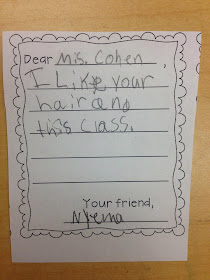 Dear Mis. Cohen,
I Like your
hair and
this class.
Your friend,
Nyema